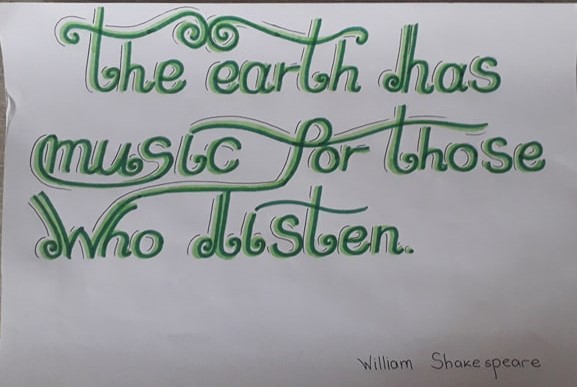 the earth has
music for those
who listen.
William Shakespeare